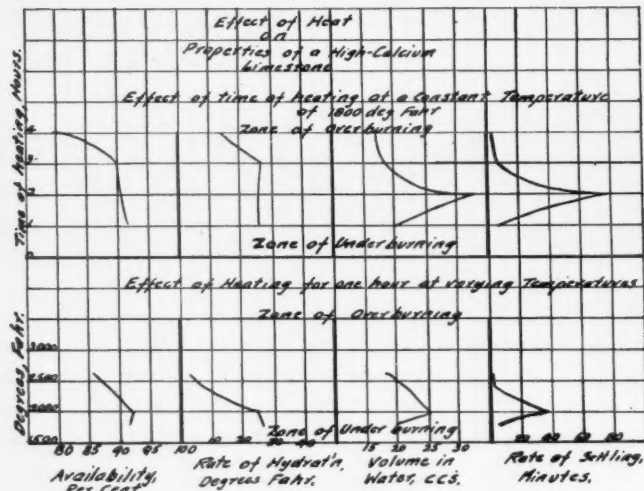 Effect of Heat
on
Properties of a High-Calcium
Limestone
Effect of time of heating at a Constant Temperature
of 1800 deg Fahr
Zone of Overburning
Time of heating, Hours.
4
3
2
1
0
Zone of Underburning
Effect of Heating for one hour at varying Temperatures
Zone of Overburning
Degrees, Fahr.
3000
2500
2000
1500
Zone of Underburning
80 85 90 95 100 10 20 30 40 15 20 25 30 20 40 60 80
Availability, Per Cent
Rate of Hydrat'n, Degrees Fahr.
Volume in Water, CCS.
Rate of Settling, Minutes.